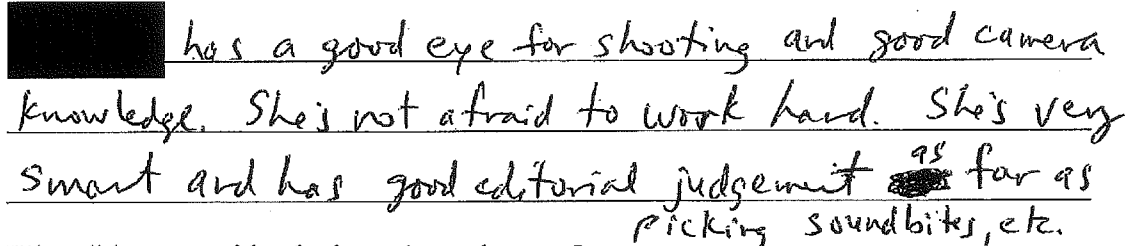 has a good eye for shooting and good camera
knowledge. She's not afraid to work hard. She's very
smart and has good editorial judgement as far as
picking soundbites, etc.